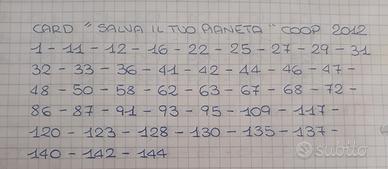 CARD " SALVA IL TUO PIANETA " COOP 2012
1 - 11 - 12 - 16 - 22 - 25 - 27 - 29 - 31
32 - 33 - 36 - 41 - 42 - 44 - 46 - 47 -
48 - 50 - 58 - 62 - 63 - 67 - 68 - 72 -
86 - 87 - 91 - 93 - 95 - 109 - 117 -
120 - 123 - 128 - 130 - 135 - 137 -
140 - 142 - 144
subito